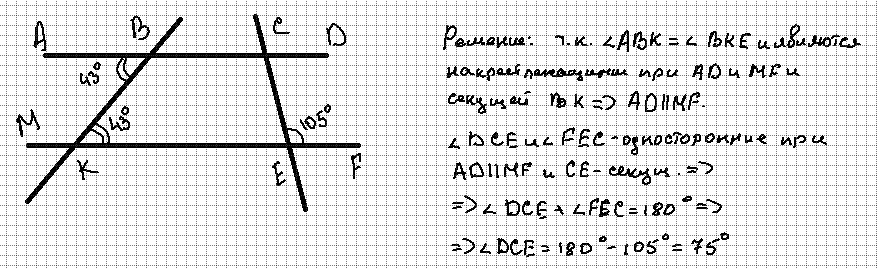 A B C D
43°
M 43° 105°
K E F
Решение: т.к. ∠ABK = ∠BKE и являются
накрест лежащими при AD и MF и
секущей BK => AD||MF.
∠DCE и ∠FEC - односторонние при
AD||MF и CE - секущ. =>
=> ∠DCE + ∠FEC = 180° =>
=> ∠DCE = 180° - 105° = 75°